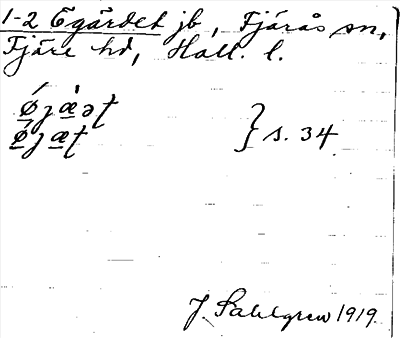 1-2 Egärdet jb, Fjärås sn,
Fjäre hd, Hall. l.
ǿjæ̀ət
ǿjæt } s. 34
J. Sahlgren 1919.